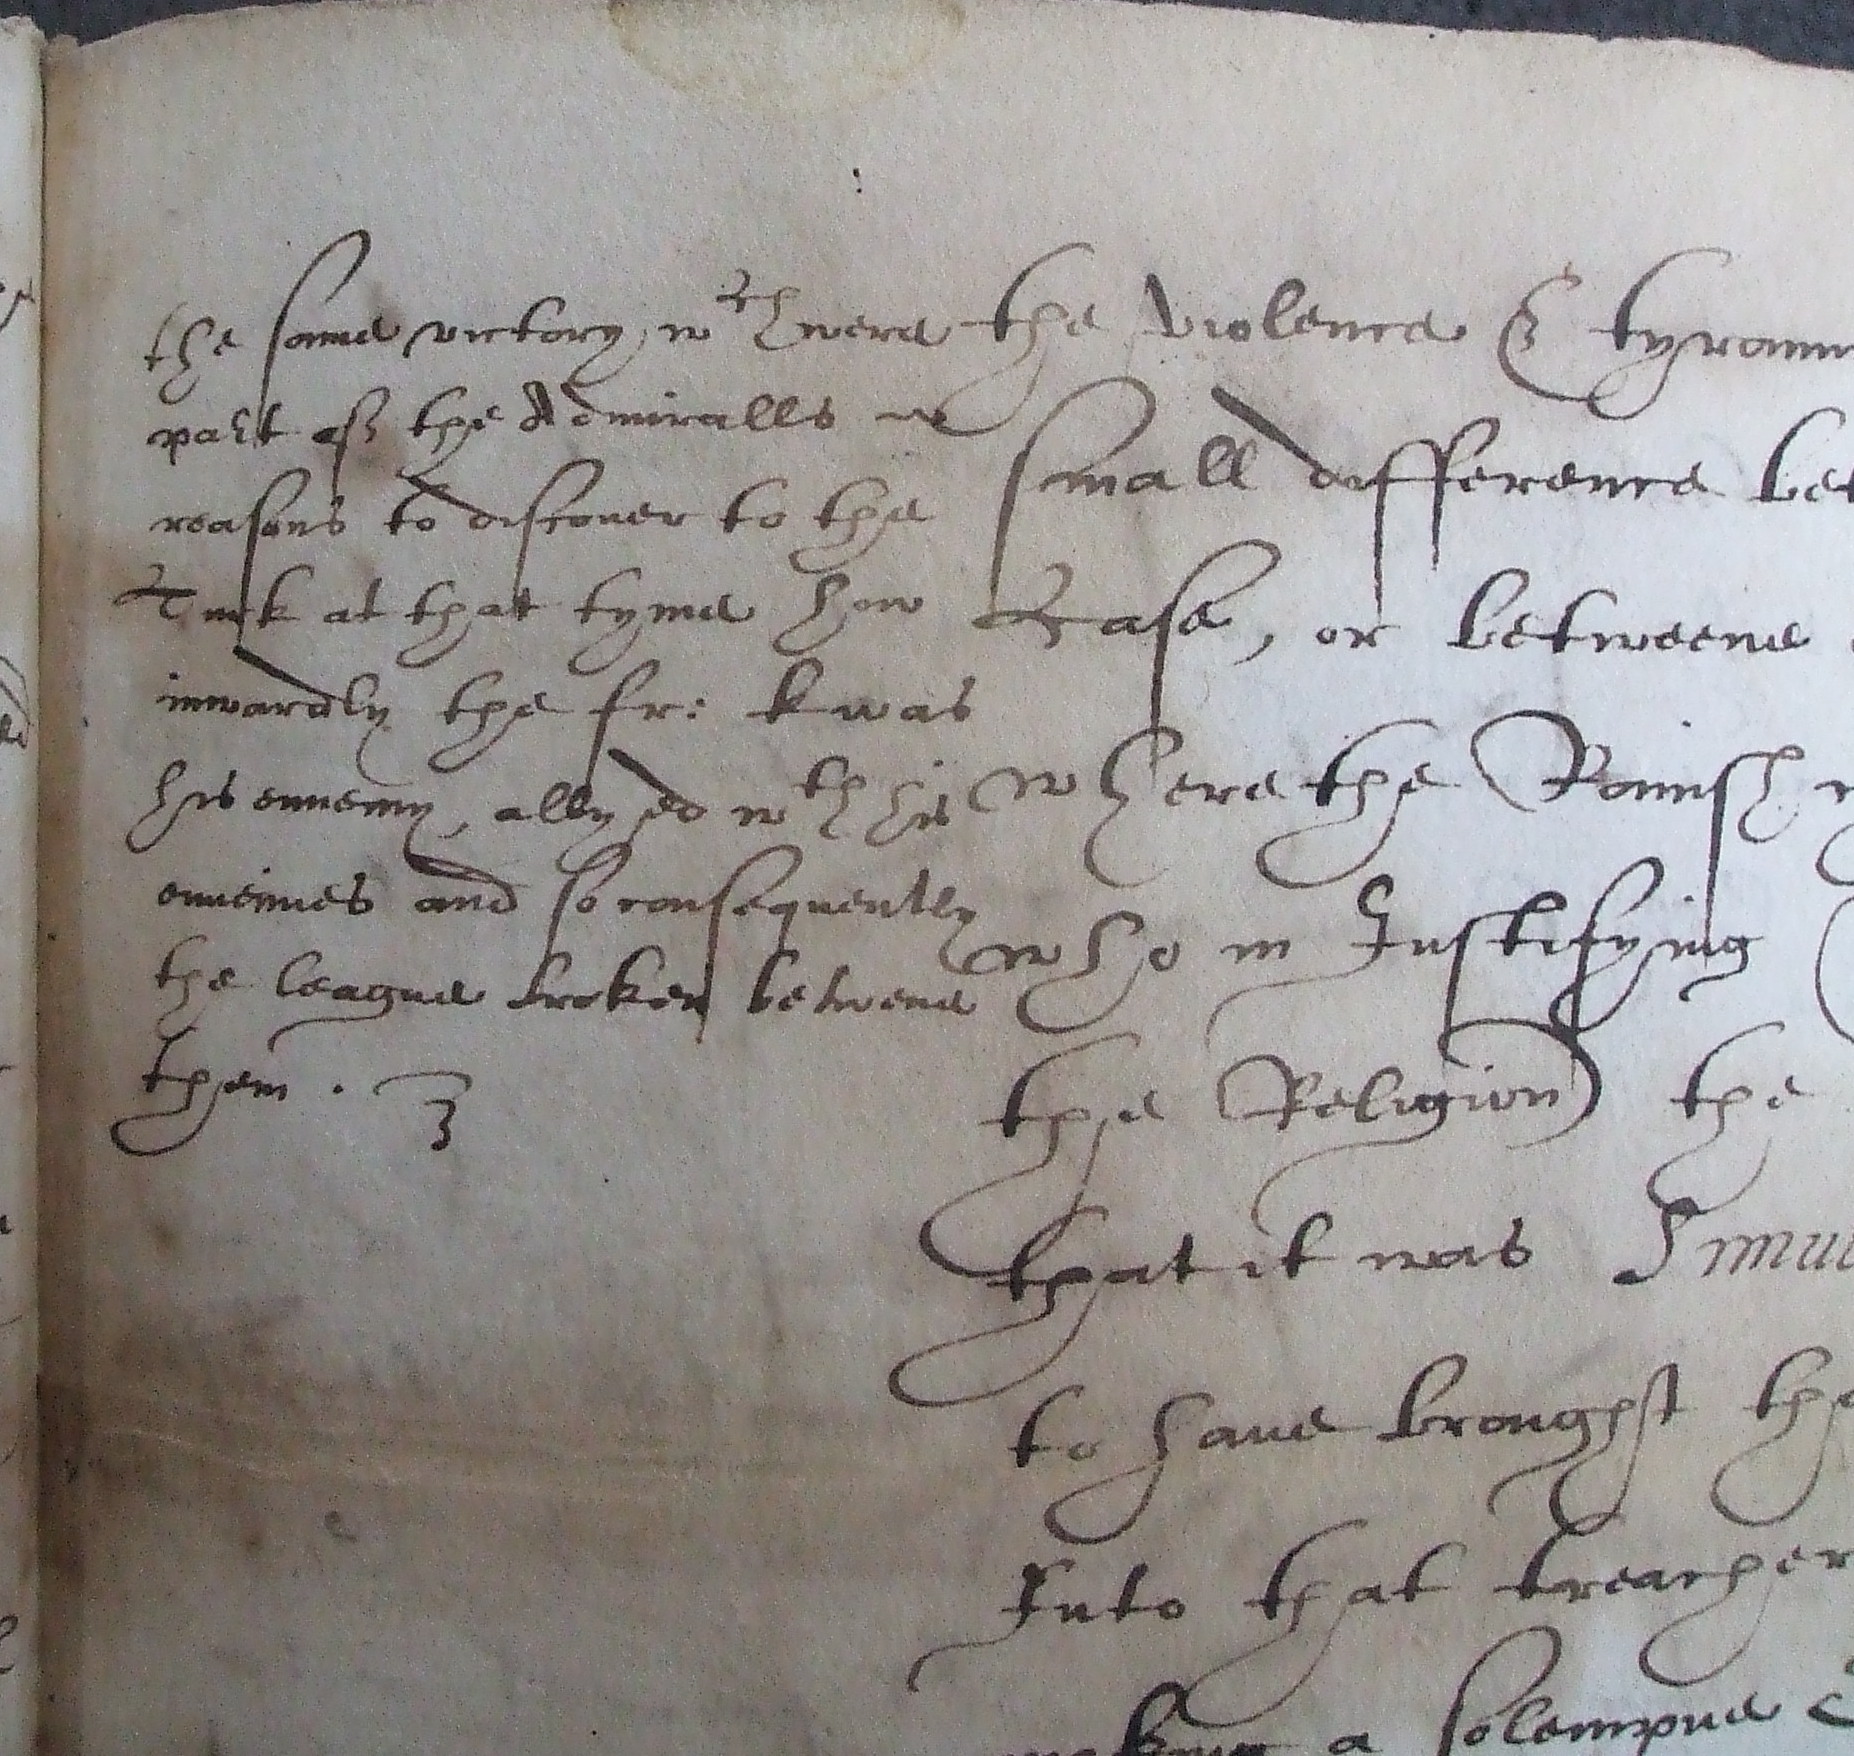 the same victory, wch were
part as the Admiralls
reasons to discouer to the
Turk at that tyme how
inwardly the fr: k was
his ennemy, allyed wth his
ennemies and so consequently
the league broken betwene
them .
the violence & tyrann
small difference bet
Case, or betweene
where the Romish
who in Iustifying
the Religion the
that it was Simu
to haue brought the
Into that treacher
making a solempne